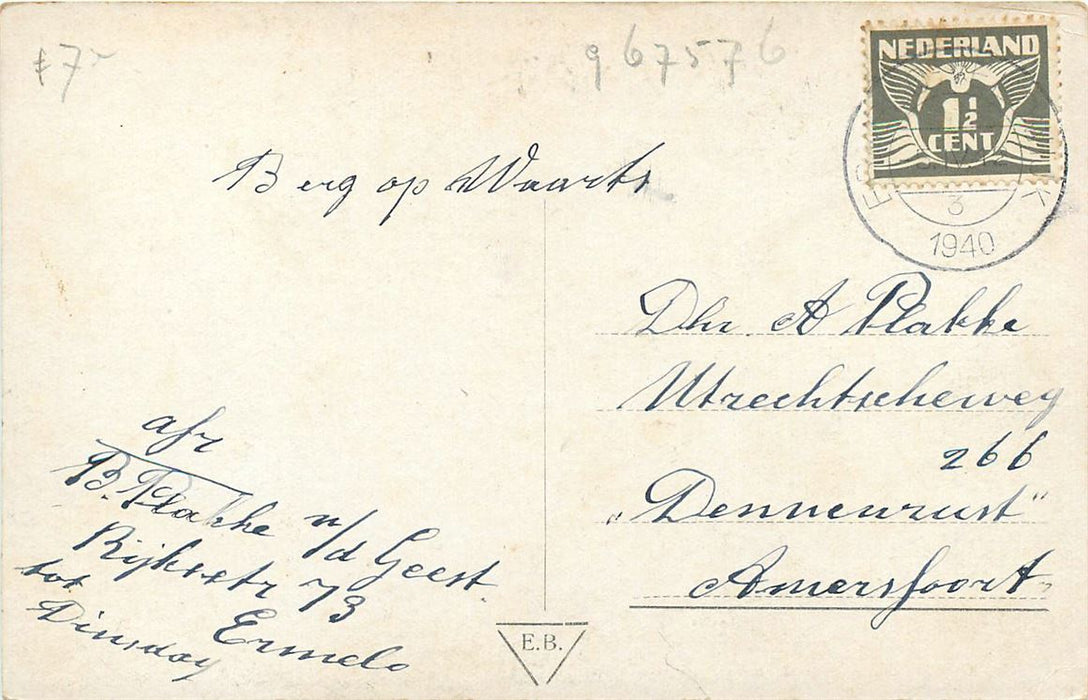 £7~
967576
NEDERLAND
1½
CENT
3
1940
Berg op Waarts
Dhr. A Plakke
Utrechtscheweg
266
„Dennenrust"
Amersfoort
afz
B. Plakke v/d Geest.
Rijksstr 73
Ermelo
tot
Dinsdag
E.B.